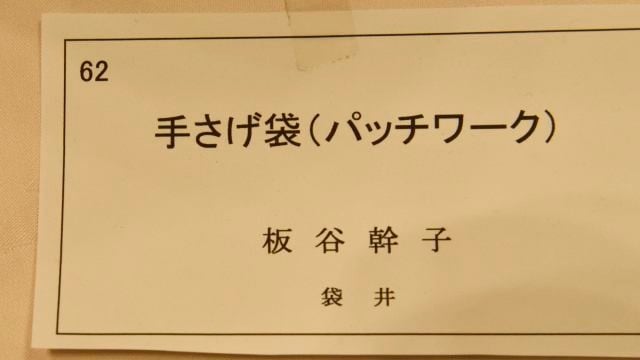 62
手さげ袋(パッチワーク)
板谷幹子
袋井